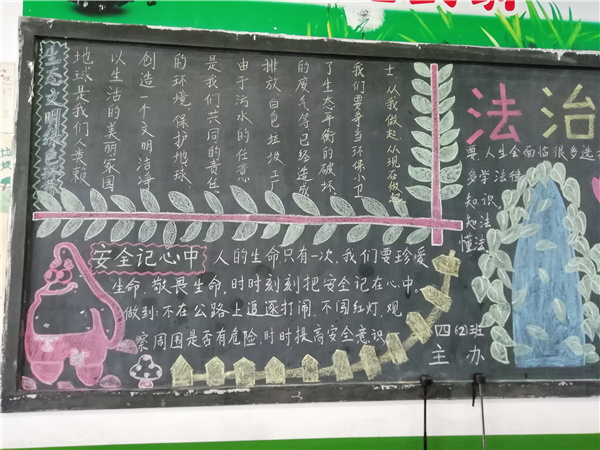 生态文明绿色环保
地球是我们人类赖
以生活的美丽家园
创造一个文明洁净
的环境,保护地球,
是我们共同的责任
由于污水的任意
排放 白色垃圾 工厂
的废气等已经造成
了生态平衡的破坏.
我们要争当环保小卫
士 从我做起 从现在做起
安全记心中
人的生命只有一次,我们要珍爱
生命,敬畏生命,时时刻刻把安全记在心中,
做到:不在公路上追逐打闹,不闯红灯,观
察周围是否有危险,时时提高安全意识
法治
要,人生会面临很多选
多学法律
知识
知法
懂法
四(2)班
主办